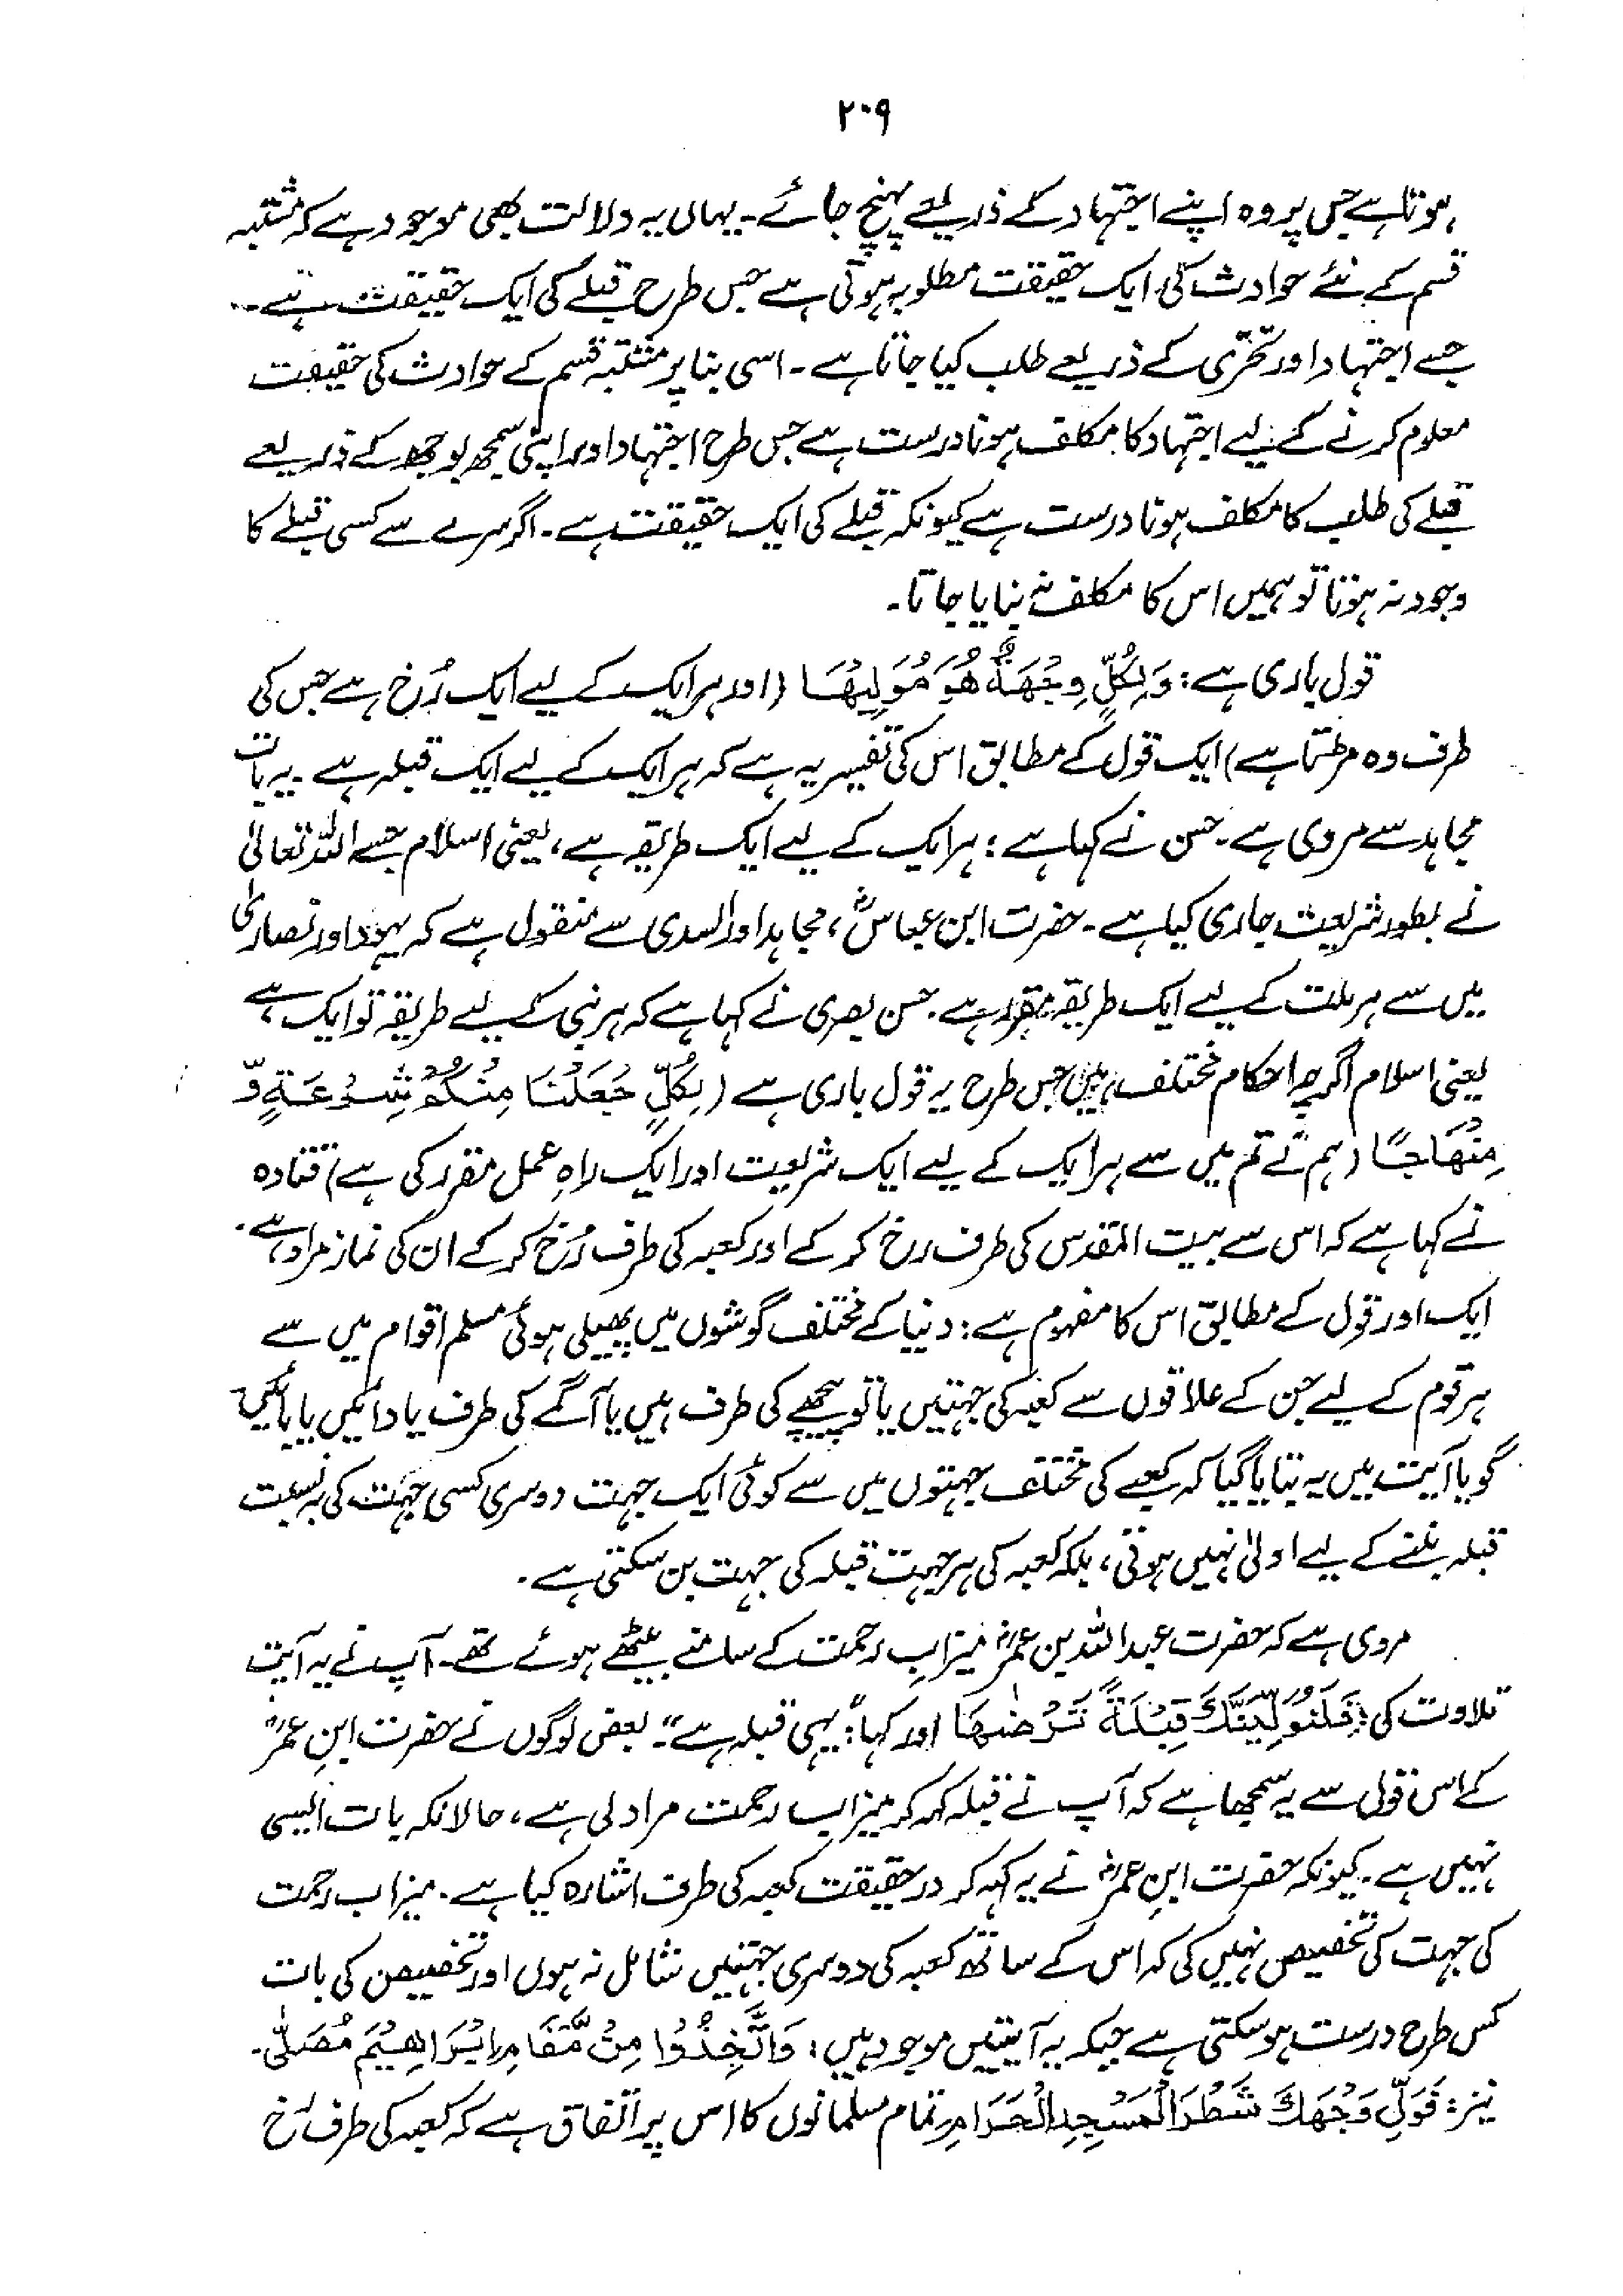 ۲۰۹
ہوتا ہے جس پر وہ اپنے اجتہاد کے ذریعے پہنچ جائے۔ یہاں یہ دلالت بھی موجود ہے کہ مشتبہ
قسم کے نئے حوادث کی ایک حقیقت مطلوبہ ہوتی ہے جس طرح قبلے کی ایک حقیقت ہے۔
جسے اجتہاد اور تحرّی کے ذریعے طلب کیا جاتا ہے۔ اسی بنا پر مشتبہ قسم کے حوادث کی حقیقت
معلوم کرنے کے لیے اجتہاد کا مکلف ہونا درست ہے جس طرح اجتہاد اور اپنی سمجھ بوجھ کے ذریعے
قبلے کی طلب کا مکلف ہونا درست ہے کیونکہ قبلے کی ایک حقیقت ہے۔ اگر سرے سے کسی قبلے کا
وجود نہ ہوتا تو ہمیں اس کا مکلف نہ بنایا جاتا۔
قول باری ہے: وَلِكُلٍّ وِجْهَةٌ هُوَ مُوَلِّيْهَا (اور ہر ایک کے لیے ایک رُخ ہے جس کی
طرف وہ مڑتا ہے) ایک قول کے مطابق اس کی تفسیر یہ ہے کہ ہر ایک کے لیے ایک قبلہ ہے۔ یہ بات
مجاہد سے مروی ہے۔ حسن نے کہا ہے: ہر ایک کے لیے ایک طریقہ ہے، یعنی اسلام جسے اللہ تعالیٰ
نے بطور شریعت جاری کیا ہے۔ حضرت ابن عباسؓ، مجاہد اور السدی سے منقول ہے کہ یہود اور نصاریٰ
میں سے ہر ملت کے لیے ایک طریقہ مقرر ہے۔ حسن بصری نے کہا ہے کہ ہر نبی کے لیے طریقہ تو ایک ہے
یعنی اسلام اگرچہ احکام مختلف ہیں جس طرح یہ قول باری ہے (لِكُلٍّ جَعَلْنَا مِنْكُمْ شِرْعَةً وَّ
مِنْهَاجًا (ہم نے تم میں سے ہر ایک کے لیے ایک شریعت اور ایک راہِ عمل مقرر کی ہے) قتادہ
نے کہا ہے کہ اس سے بیت المقدس کی طرف رخ کر کے اور کعبہ کی طرف رُخ کر کے ان کی نماز مراد ہے۔
ایک اور قول کے مطابق اس کا مفہوم ہے: دنیا کے مختلف گوشوں میں پھیلی ہوئی مسلم اقوام میں سے
ہر قوم کے لیے جن کے علاقوں سے کعبہ کی جہتیں یا تو پیچھے کی طرف ہیں یا آگے کی طرف یا دائیں یا بائیں۔
گویا آیت میں یہ بتایا گیا کہ کعبے کی مختلف جہتوں میں سے کوئی ایک جہت دوسری کسی جہت کی بہ نسبت
قبلہ بننے کے لیے اولیٰ نہیں ہوتی، بلکہ کعبہ کی ہر جہت قبلہ کی جہت بن سکتی ہے۔
مروی ہے کہ حضرت عبداللہ بن عمرؓ میزابِ رحمت کے سامنے بیٹھے ہوئے تھے۔ آپ نے یہ آیت
تلاوت کی: فَلَنُوَلِّيَنَّكَ قِبْلَةً تَرْضٰهَا اور کہا: "یہی قبلہ ہے"۔ بعض لوگوں نے حضرت ابنِ عمرؓ
کے اس قول سے یہ سمجھا ہے کہ آپ نے قبلہ کہہ کر میزاب رحمت مراد لی ہے، حالانکہ بات ایسی
نہیں ہے۔ کیونکہ حضرت ابنِ عمرؓ نے یہ کہہ کر درحقیقت کعبہ کی طرف اشارہ کیا ہے۔ میزاب رحمت
کی جہت کی تخصیص نہیں کی کہ اس کے ساتھ کعبہ کی دوسری جہتیں شامل نہ ہوں اور تخصیص کی بات
کس طرح درست ہو سکتی ہے جبکہ یہ آیتیں موجود ہیں: وَاتَّخِذُوْا مِنْ مَّقَامِ اِبْرَاهِيْمَ مُصَلًّى۔
نیز: فَوَلِّ وَجْهَكَ شَطْرَ الْمَسْجِدِ الْحَرَامِ تمام مسلمانوں کا اس پر اتفاق ہے کہ کعبہ کی طرف رُخ